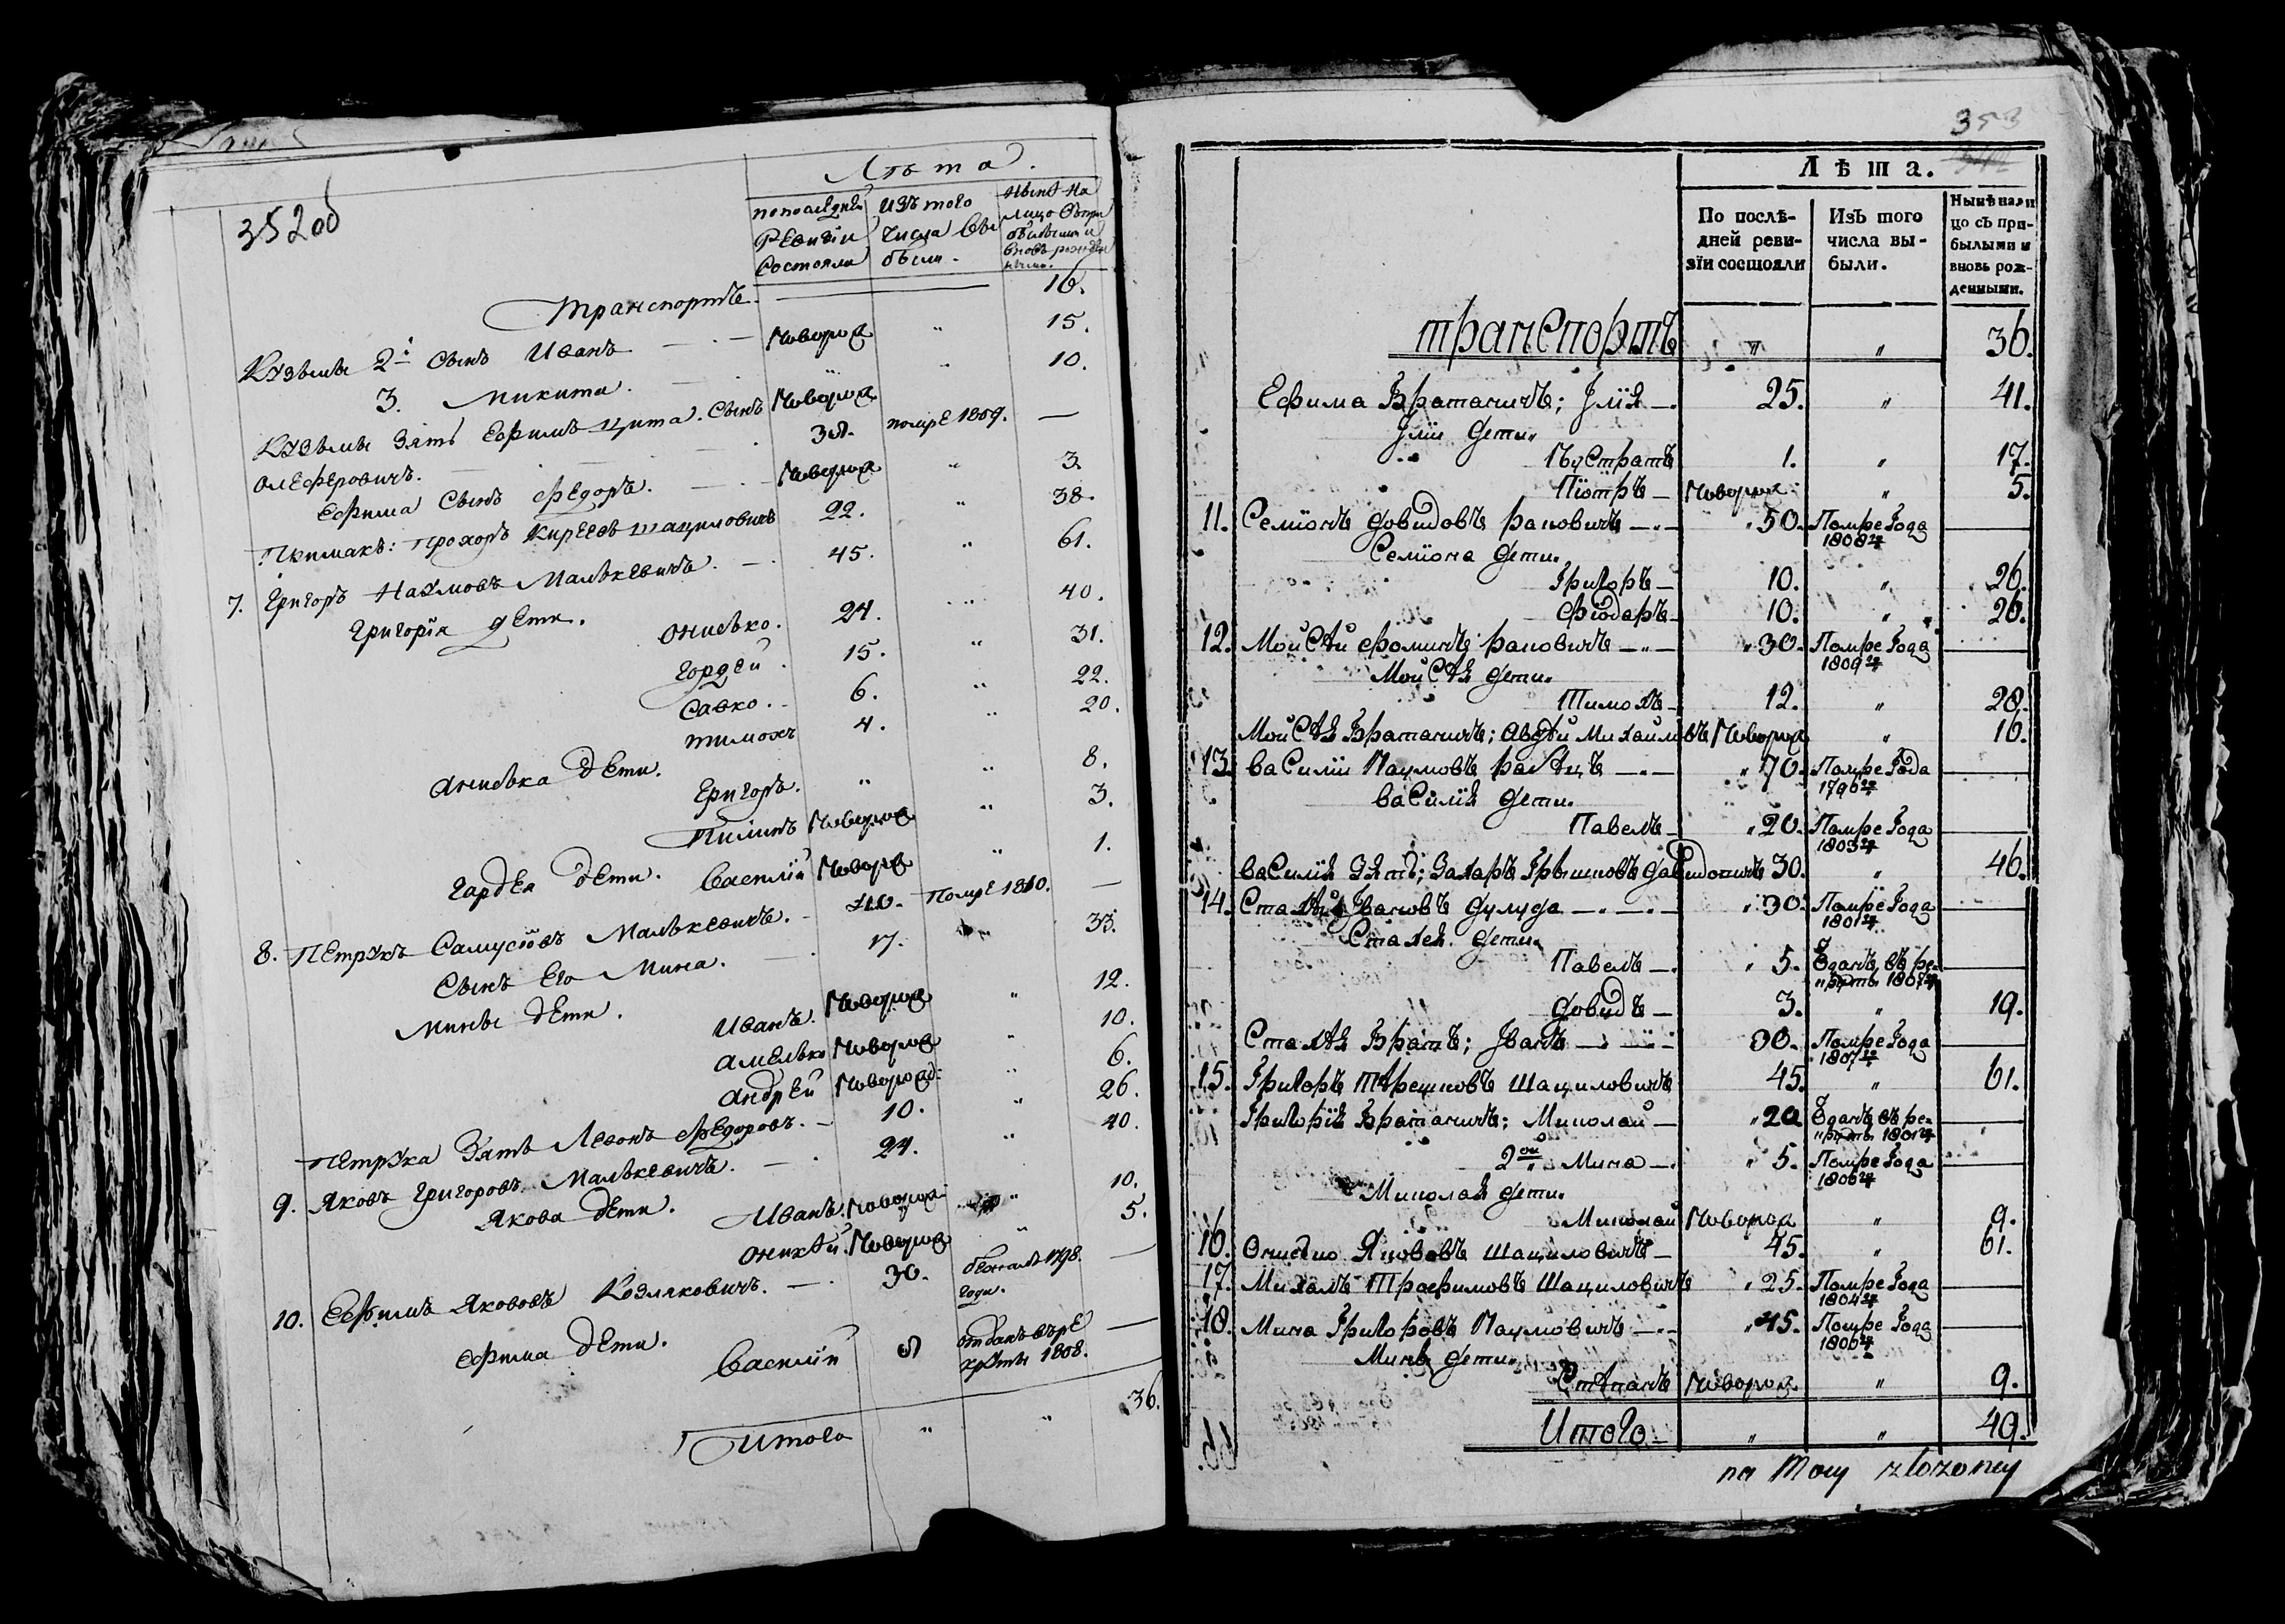 352об
Лѣта.
попослѣдней ревизіи состояли
изъ того числа выбыли.
нынѣ на лицо съ прибылыми и вновь рожденными.
Транспортъ. 16.
Кузьмы 2й сынъ Иванъ новорож " 15.
3. Микита. " " 10.
Кузьмы Зять Ефимъ Цита. Сынъ новорож
Олеферовичъ. 38. помре 1809. —
Ефима Сынъ Федоръ. новорож " 3.
Примакъ: Прохоръ Киреевъ Шациловичъ 22. " 38.
7. Григоръ Наумовъ Малькевичъ. 45. " 61.
Григорія дети. Онисько. 24. " 40.
Гордей. 15. " 31.
Савко. 6. " 22.
Тимохъ 4. " 20.
Аниська дети. Григоръ. " " 8.
Пилипъ новорож " 3.
Гардея дети. Василій новорож " 1.
8. Петрукъ Самусіовъ Малькевичъ. 40. Помре 1810. —
Сынъ Его Мина. 17. " 33.
Мины дети. Иванъ. новорож " 12.
Амелько новорож " 10.
Андрей новорож " 6.
Петрука Зять Левонъ Федоровъ. 10. " 26.
9. Яковъ Григоровъ Малькевичъ. 24. " 40.
Якова дети. Иванъ. новорож " 10.
Онихѣй. новорож " 5.
10. Ефимъ Якововъ Козляковичъ. 30. бежалъ 1798. годи. —
Ефима дети. Василій 8 отданъ въ рекруты 1808. —
Итого " " 36.
353
Лѣта.
По послѣдней ревизіи состояли
Изъ того числа выбыли.
Нынѣ налицо съ прибылыми и вновь рожденными.
Транспортъ " " 36.
Ефима Братаничъ; Ілія — 25. " 41.
Іліи дети.
Кустратъ 1. " 17.
Піотръ — новорож " 5.
11. Семіонъ Довидовъ Рановичъ — 50. Помре года 1808го —
Семіона дети.
Григоръ — 10. " 26.
Фіодаръ — 10. " 26.
12. Мойсѣй Фоминъ Рановичъ — 30. Помре года 1809го —
Мойсѣя дети.
Тимохъ — 12. " 28.
Мойсѣя Братаничъ; Авдѣй Михайловъ новорож " 16.
13. Василіи Наумовъ — 70. Помре года 1796го —
Василія дети.
Павелъ — 20. Помре года 1803го —
Василія Зять; Захаръ Грышновъ Давидовичъ 30. " 46.
14. Стахѣй Івановъ Дулуда — 30. Помре года 1801го —
Стахея дети.
Павелъ — 5. Зданъ въ рекруты 1807го —
Довидъ — 3. " 19.
Стахѣя Братъ; Іванъ — 30. Помре года 1807го —
15. Григоръ Шациловичъ 45. " 61.
Григорія Братаничъ; Миколай — 20 Зданъ въ рекруты 1801го —
2ой Мина — 5. Помре года 1806го —
Миколая дети.
Миколай новорож " 9.
16. Онисько Якововъ Шациловичъ — 45. " 61.
17. Михалъ Трафимовъ Шациловичъ 25. Помре года 1804го —
18. Мина Григоровъ Наумовичъ — 45. Помре года 1806го —
Мины дети.
Стѣпанъ новорож " 9.
Итого — " " 49.
na Mocy złożoney